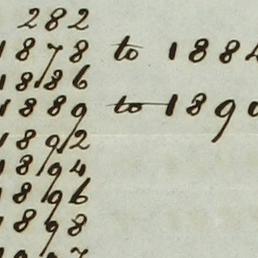 282
1878 to 1884
1886
1889 to 1890
1892
1894
1896
1898